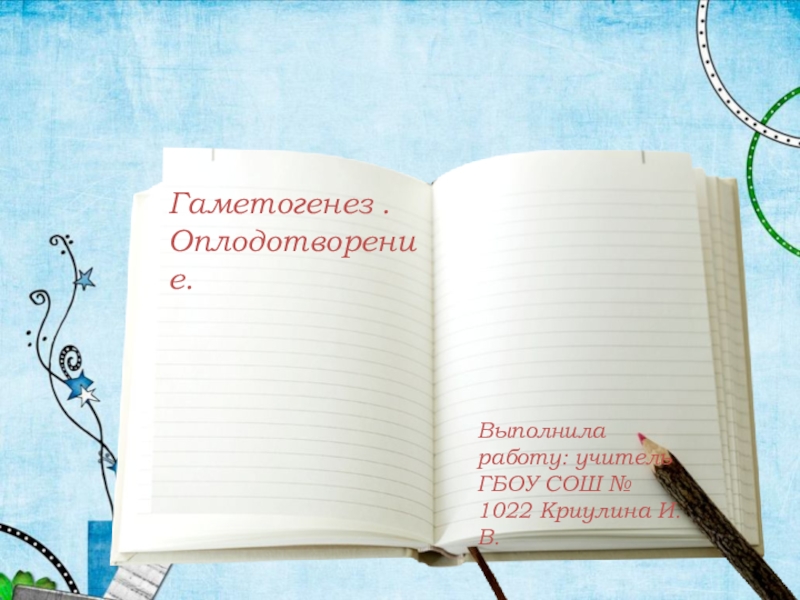 Гаметогенез .
Оплодотворени
е.
Выполнила
работу: учитель
ГБОУ СОШ №
1022 Криулина И.
В.